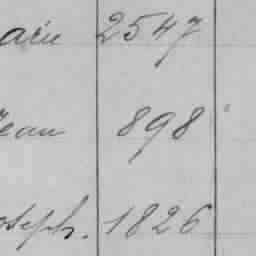 arie 2547
Jean 898
oseph. 1826